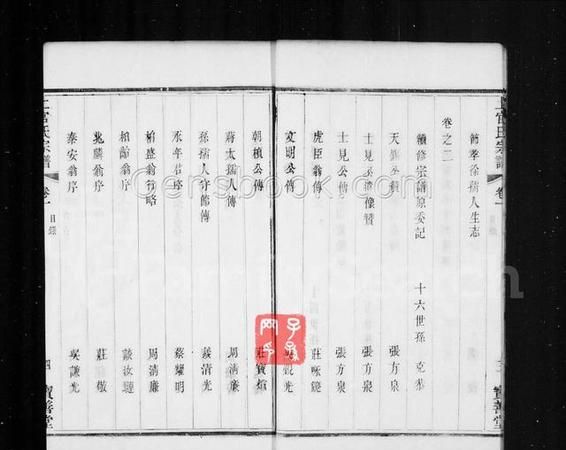 上官氏宗譜 卷一 目錄 三 寶善堂
節孝徐孺人生志
卷之二
續修宗譜原委記 十六世孫 克恭
張方泉
士見公遺像贊 張方泉
士見公傳 張方泉
虎臣翁傳 莊咏鏡
文明公傳
朝楨公傳
蔣太孺人傳 周清廉
孫孺人守節傳 談清光
永年君序 蔡耀明
柏盛翁行略 周清廉
柏齡翁序
兆麟翁序 莊敬
泰安翁序 吳謙光
上官氏宗譜 卷一 目錄 四 寶善堂
Gensbook.cn
FamilySearch